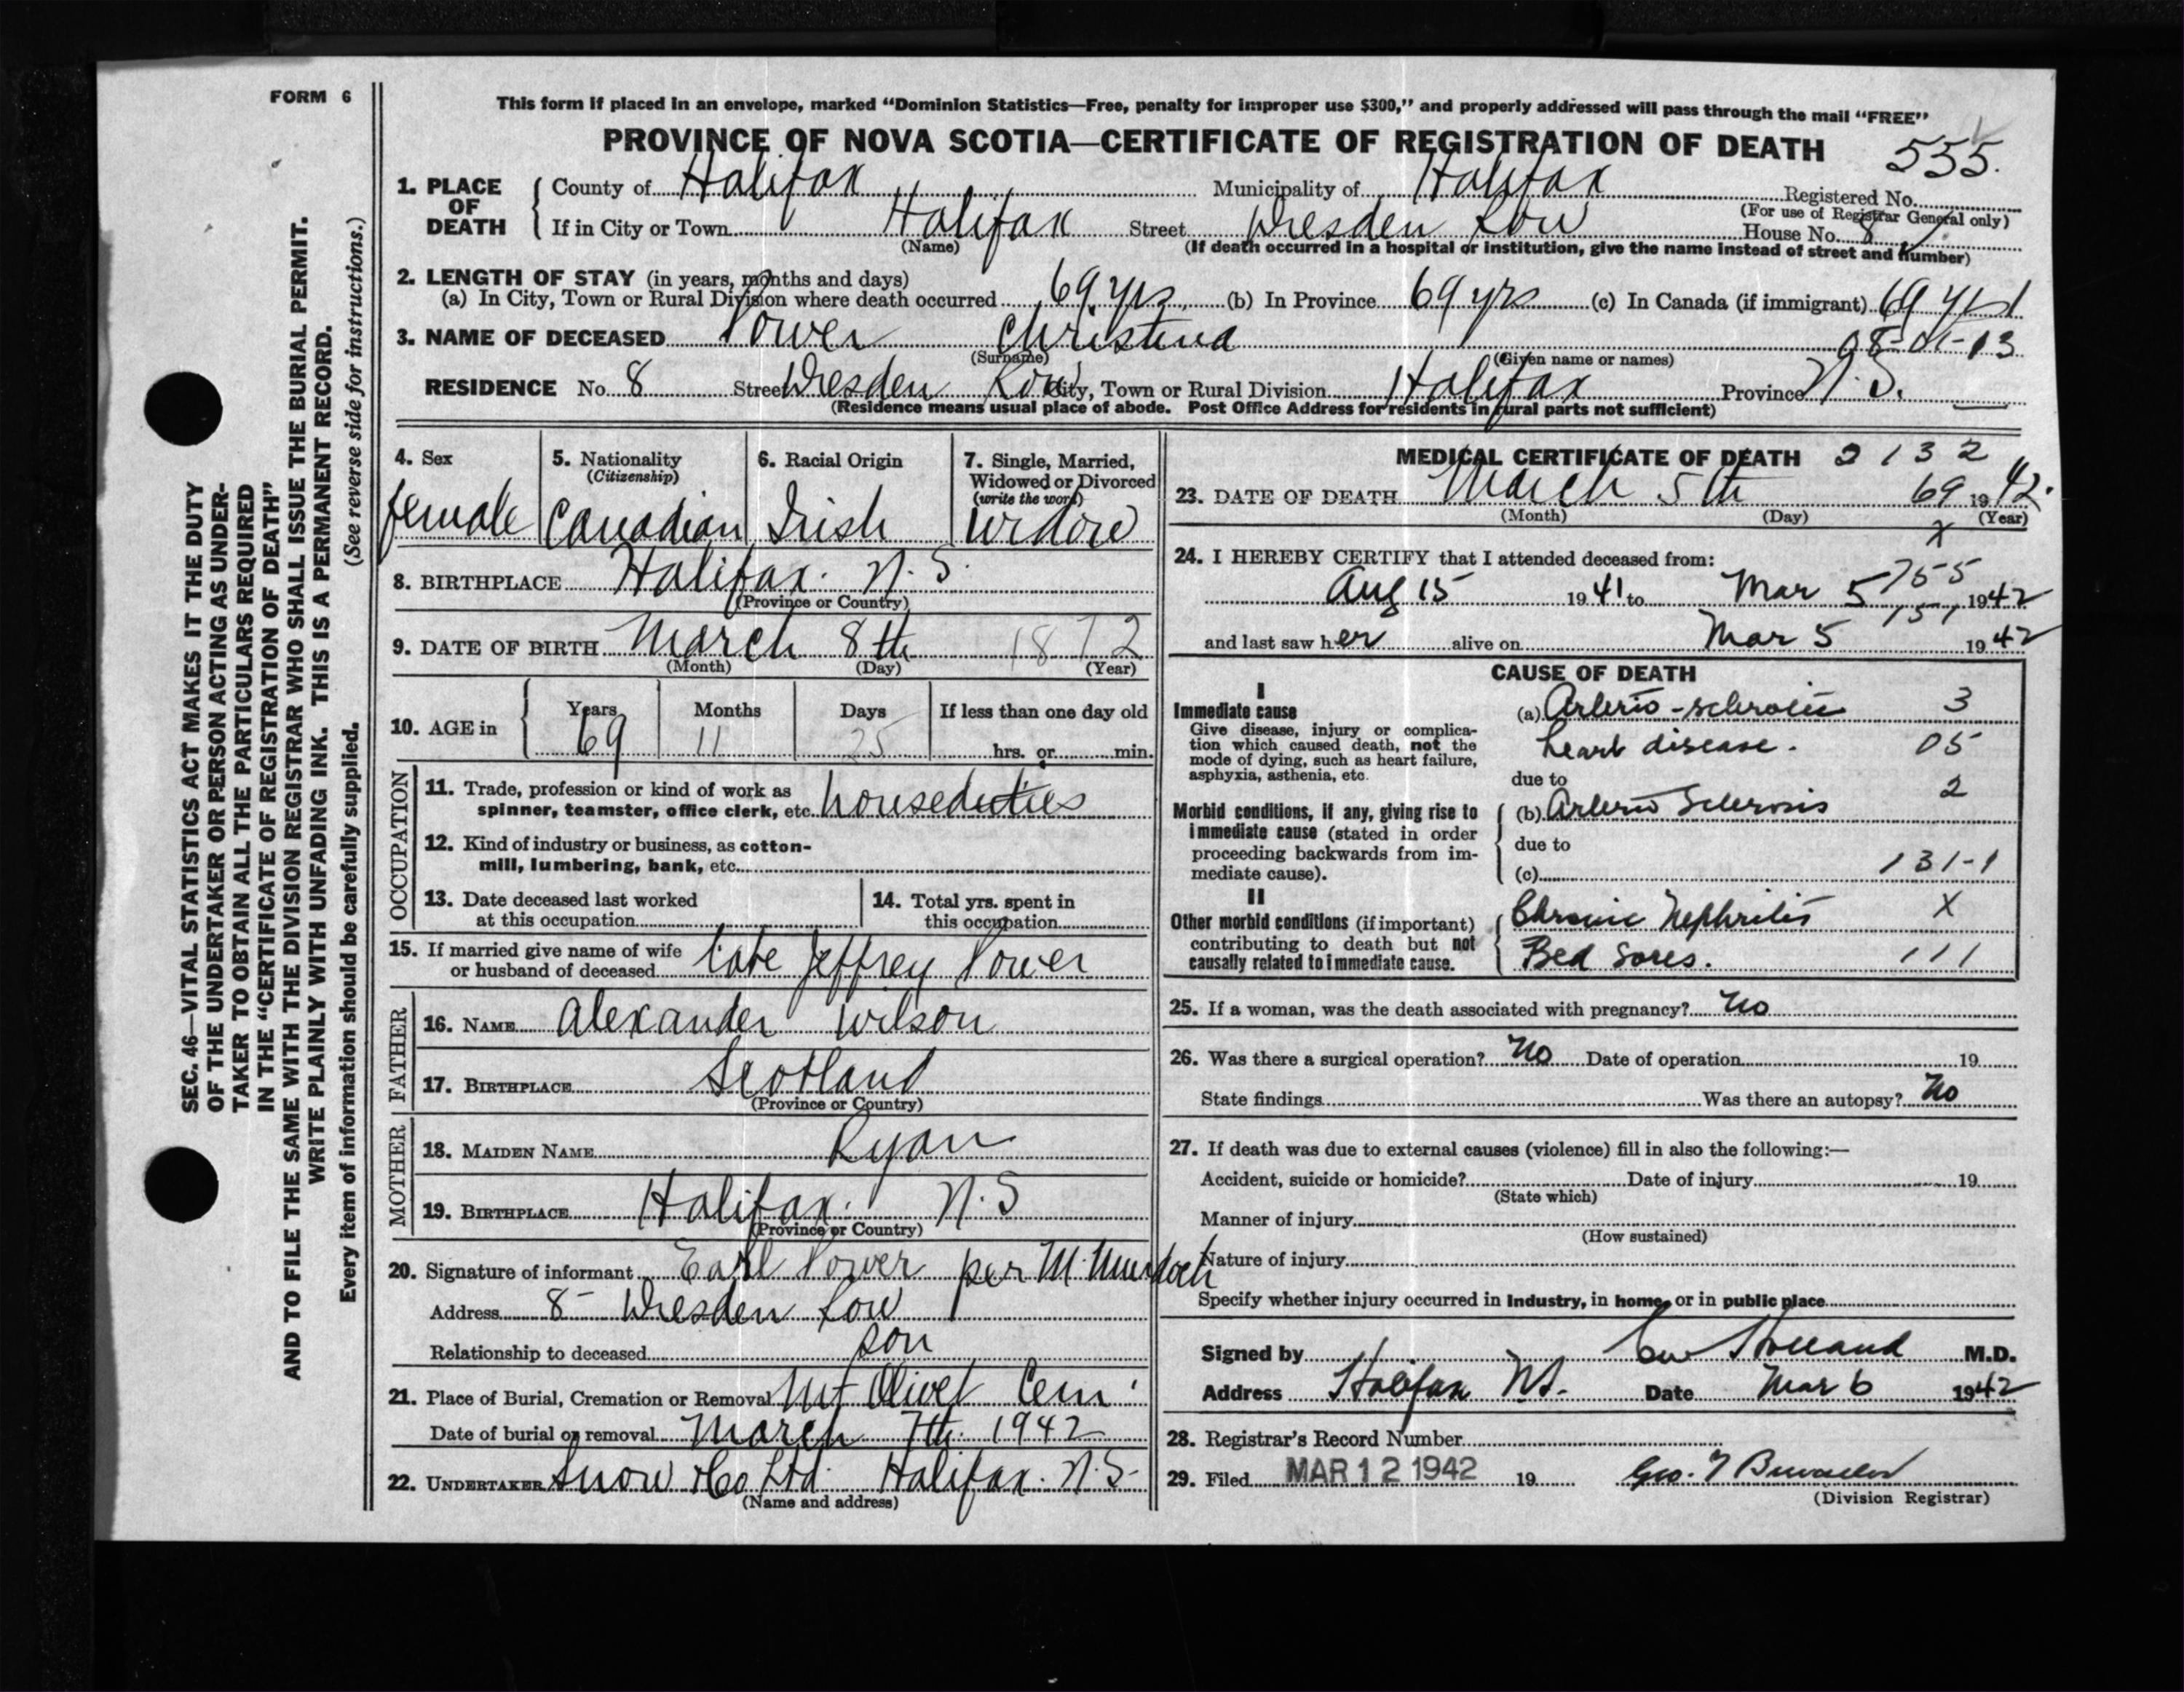 FORM 6
This form if placed in an envelope, marked “Dominion Statistics—Free, penalty for improper use $300,” and properly addressed will pass through the mail “FREE”
PROVINCE OF NOVA SCOTIA—CERTIFICATE OF REGISTRATION OF DEATH 555.
1. PLACE OF DEATH
County of Halifax Municipality of Halifax Registered No.
(For use of Registrar General only)
If in City or Town Halifax Street Dresden Row House No. 8
(Name) (If death occurred in a hospital or institution, give the name instead of street and number)
2. LENGTH OF STAY (in years, months and days)
(a) In City, Town or Rural Division where death occurred 69 yrs (b) In Province 69 yrs (c) In Canada (if immigrant) 69 yrs
3. NAME OF DECEASED Power Christina 08-01-13
(Surname) (Given name or names)
RESIDENCE No. 8 Street Dresden Row City, Town or Rural Division Halifax Province N.S.
(Residence means usual place of abode. Post Office Address for residents in rural parts not sufficient)
4. Sex female
5. Nationality (Citizenship) Canadian
6. Racial Origin Irish
7. Single, Married, Widowed or Divorced (write the word) Widow
8. BIRTHPLACE Halifax. N.S.
(Province or Country)
9. DATE OF BIRTH March 8th 1872
(Month) (Day) (Year)
10. AGE in Years 69 Months 11 Days 25 If less than one day old hrs. or min.
OCCUPATION
11. Trade, profession or kind of work as
spinner, teamster, office clerk, etc. houseduties
12. Kind of industry or business, as cotton-
mill, lumbering, bank, etc.
13. Date deceased last worked
at this occupation
14. Total yrs. spent in
this occupation
15. If married give name of wife
or husband of deceased late Jeffrey Power
FATHER
16. NAME Alexander Wilson
17. BIRTHPLACE Scotland
(Province or Country)
MOTHER
18. MAIDEN NAME Ryan
19. BIRTHPLACE Halifax. N.S
(Province or Country)
20. Signature of informant Earl Power per M. Murdoch
Address 8 - Dresden Row
Relationship to deceased son
21. Place of Burial, Cremation or Removal Mt Olivet Cem
Date of burial or removal March 7th 1942
22. UNDERTAKER Snow & Co Ltd. Halifax. N.S.
(Name and address)
MEDICAL CERTIFICATE OF DEATH 2132
23. DATE OF DEATH March 5th 69 1942.
(Month) (Day) (Year)
x
24. I HEREBY CERTIFY that I attended deceased from:
755
Aug 15 1941 to Mar 5 1942
151
and last saw her alive on Mar 5 1942
CAUSE OF DEATH
I
Immediate cause
Give disease, injury or complica-
tion which caused death, not the
mode of dying, such as heart failure,
asphyxia, asthenia, etc.
(a) Arterio-sclerotic 3
heart disease. 05
due to 2
Morbid conditions, if any, giving rise to
immediate cause (stated in order
proceeding backwards from im-
mediate cause).
(b) Arterio Sclerosis
due to
(c) 131-1
II
Other morbid conditions (if important)
contributing to death but not
causally related to immediate cause.
Chronic Nephritis X
Bed Sores. 111
25. If a woman, was the death associated with pregnancy? No
26. Was there a surgical operation? No Date of operation 19
State findings Was there an autopsy? No
27. If death was due to external causes (violence) fill in also the following:—
Accident, suicide or homicide? Date of injury 19
(State which)
Manner of injury
(How sustained)
Nature of injury
Specify whether injury occurred in industry, in home, or in public place
Signed by Holland M.D.
Address Halifax NS. Date Mar 6 1942
28. Registrar's Record Number
29. Filed MAR 12 1942 19 Geo.
(Division Registrar)
SEC. 46—VITAL STATISTICS ACT MAKES IT THE DUTY
OF THE UNDERTAKER OR PERSON ACTING AS UNDER-
TAKER TO OBTAIN ALL THE PARTICULARS REQUIRED
IN THE “CERTIFICATE OF REGISTRATION OF DEATH”
AND TO FILE THE SAME WITH THE DIVISION REGISTRAR WHO SHALL ISSUE THE BURIAL PERMIT.
WRITE PLAINLY WITH UNFADING INK. THIS IS A PERMANENT RECORD.
Every item of information should be carefully supplied. (See reverse side for instructions.)